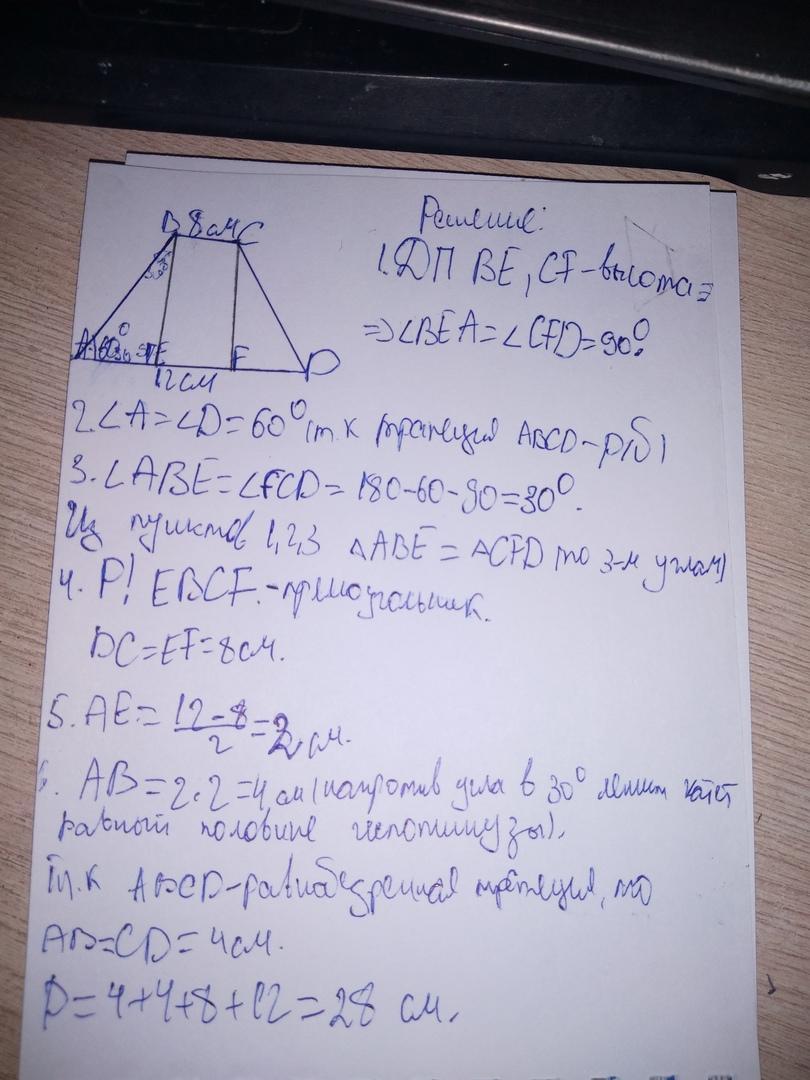 Решение:
B 8 см C
1. ДП BE, CF - высота ⇒
⇒ ∠BEA = ∠CFD = 90°
A 60° E F D
12 см
2. ∠A = ∠D = 60° (т.к трапеция ABCD - р/б)
3. ∠ABE = ∠FCD = 180-60-90 = 30°.
Из пунктов 1,2,3 △ABE = △CFD (по 3-м углам)
4. Р! EBCF. - прямоугольник.
BC = EF = 8 см.
5. AE = (12-8)/2 = 2 см.
6. AB = 2·2 = 4 см (напротив угла в 30° лежит катет
равный половине гипотинузы).
Т.к ABCD - равнабедренная трапеция, то
AB = CD = 4 см.
P = 4+4+8+12 = 28 см.